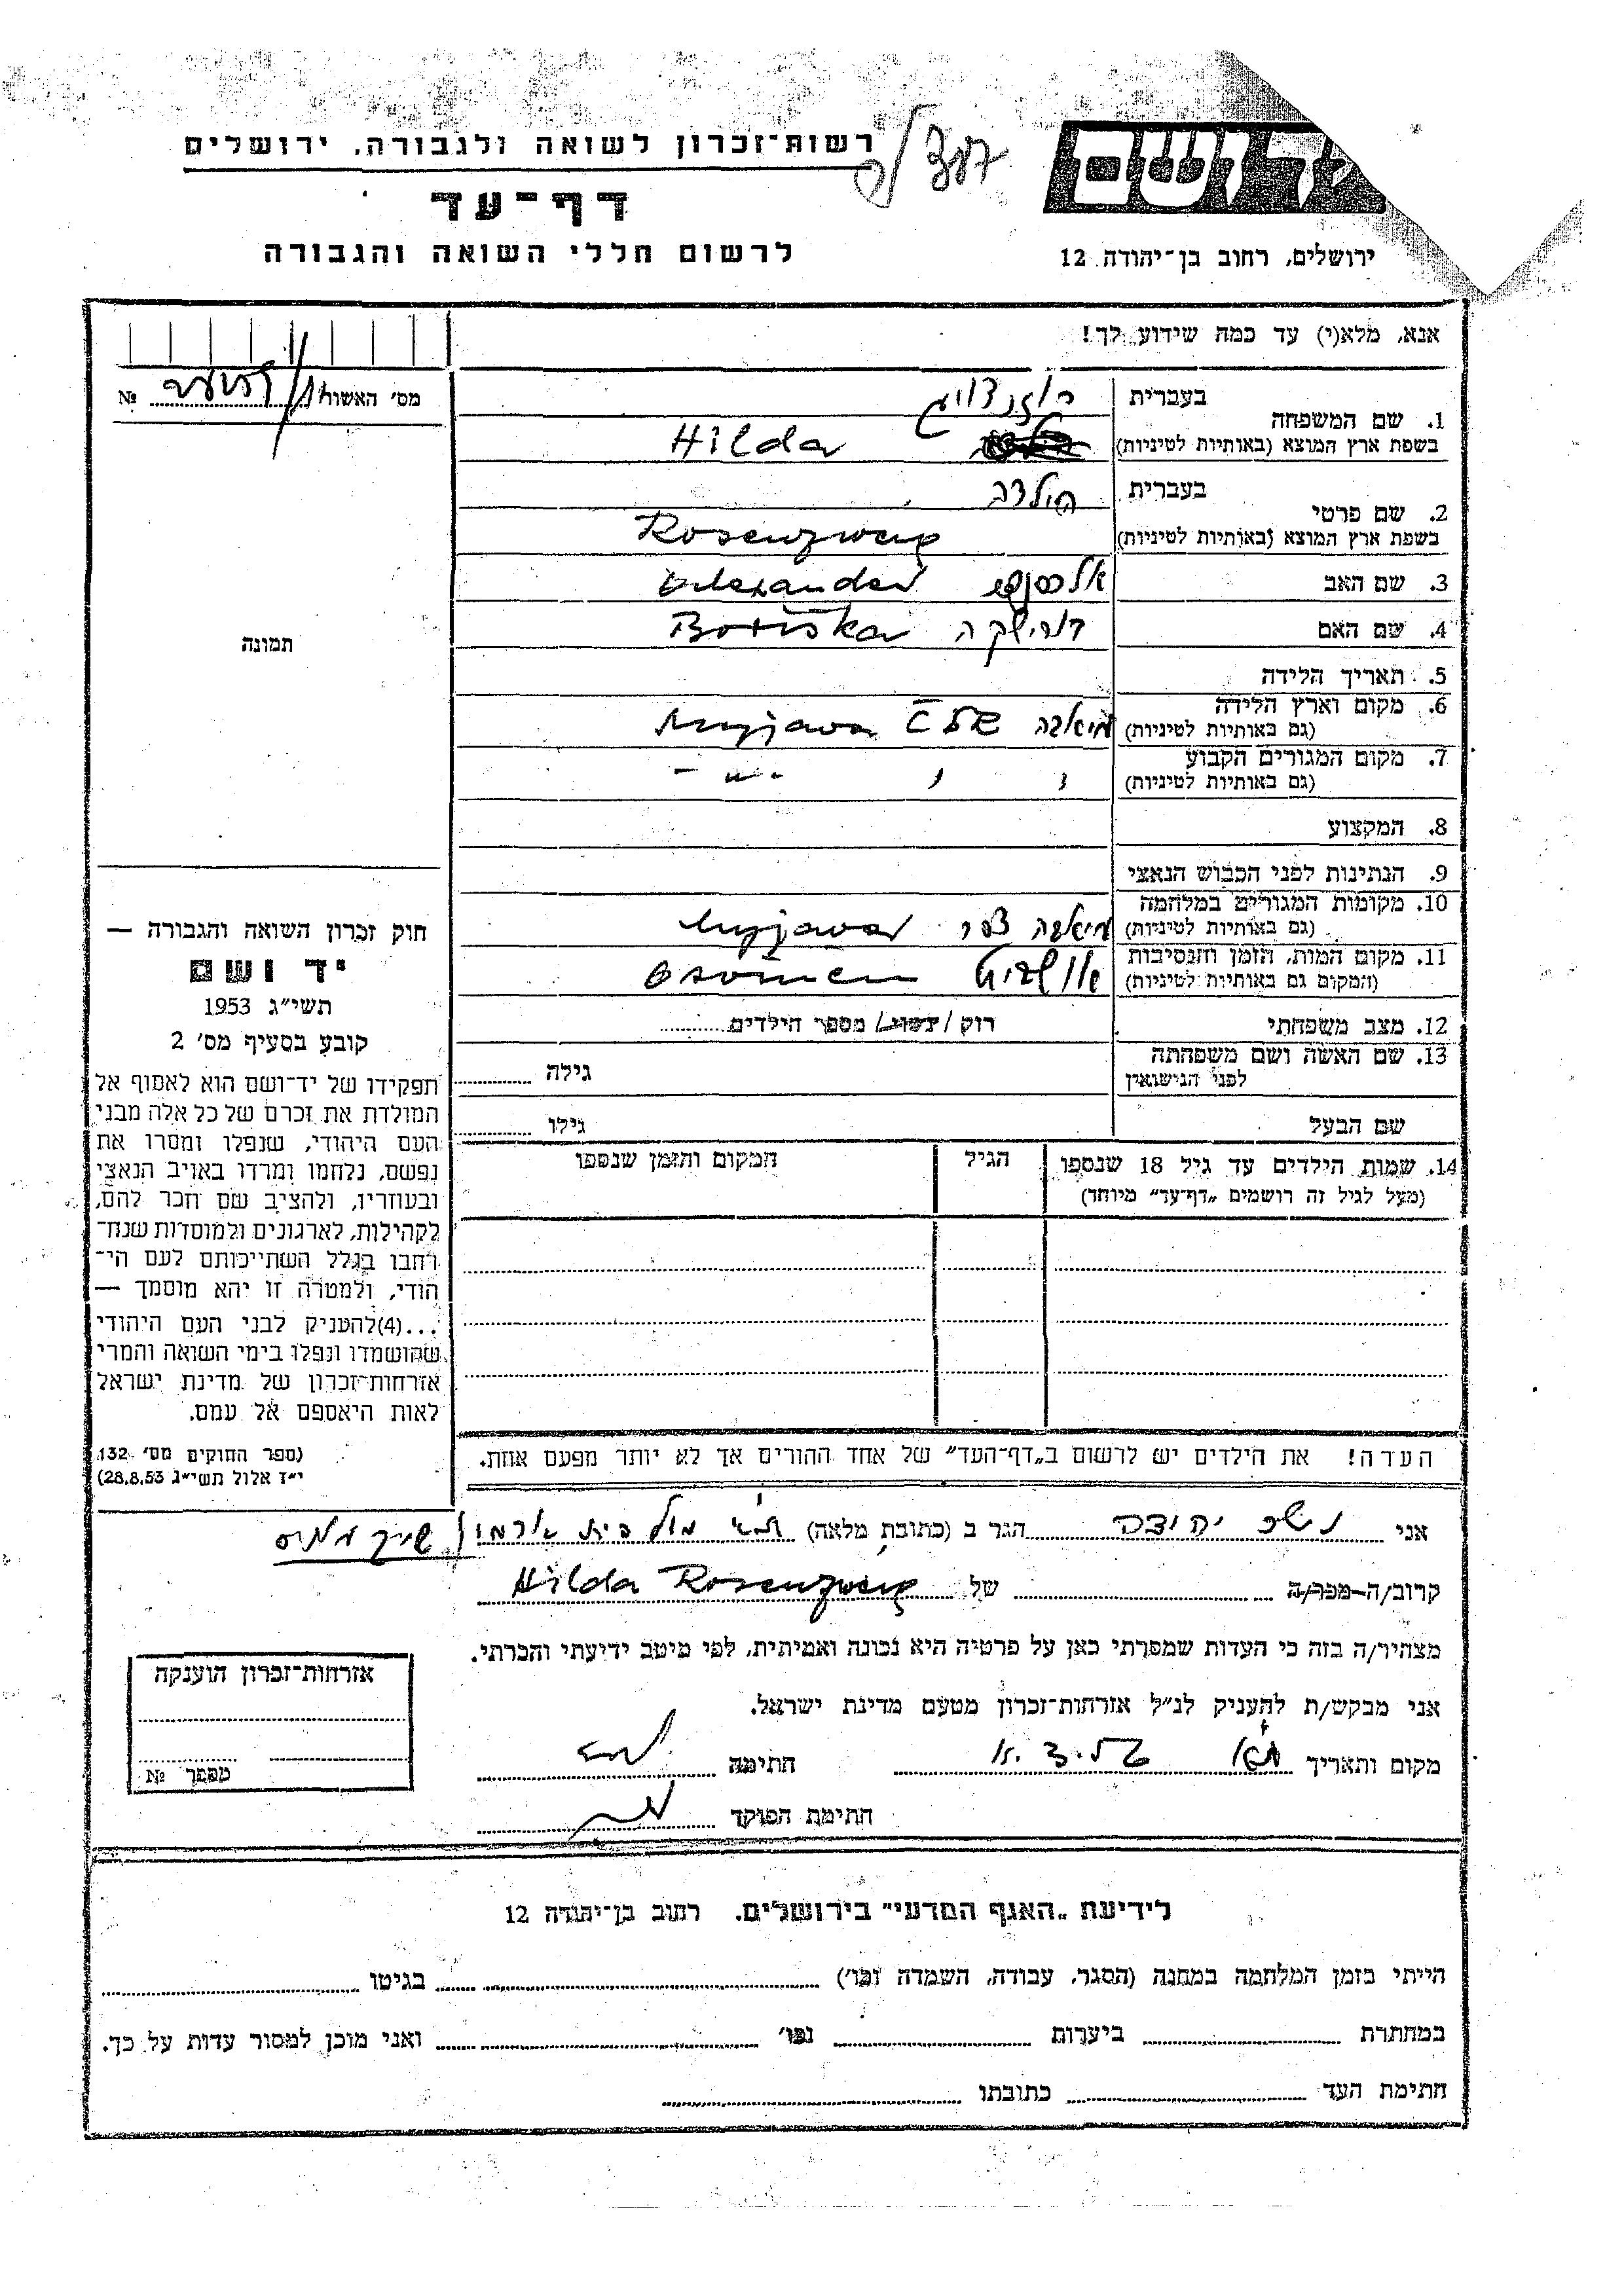 רשות־זכרון לשואה ולגבורה, ירושלים
דף־עד
לרשום חללי השואה והגבורה
ושם
ירושלים, רחוב בן־יהודה 12
אנא, מלא(י) עד כמה שידוע לך!
מס' האשור №
1. שם המשפחה
בעברית
בשפת ארץ המוצא (באותיות לטיניות) Hilda
2. שם פרטי
בעברית הילדה
בשפת ארץ המוצא (באותיות לטיניות) Rosenzweig
3. שם האב Alexander
4. שם האם Boriška
5. תאריך הלידה
6. מקום וארץ הלידה
(גם באותיות לטיניות) מיאבה Myjava
7. מקום המגורים הקבוע
(גם באותיות לטיניות) " " - " -
8. המקצוע
9. הנתינות לפני הכבוש הנאצי
10. מקומות המגורים במלחמה
(גם באותיות לטיניות) מיאבה Myjava
11. מקום המות, הזמן והנסיבות
(המקום גם באותיות לטיניות)
12. מצב משפחתי רוק / נשוי / מספר הילדים
13. שם האשה ושם משפחתה
לפני הנישואין גילה
שם הבעל גילו
14. שמות הילדים עד גיל 18 שנספו
(מעל לגיל זה רושמים „דף־עד" מיוחד)
הגיל
המקום והזמן שנספו
תמונה
חוק זכרון השואה והגבורה —
יד ושם
תשי״ג 1953
קובע בסעיף מס' 2
תפקידו של יד־ושם הוא לאסוף אל
המולדת את זכרם של כל אלה מבני
העם היהודי, שנפלו ומסרו את
נפשם, נלחמו ומרדו באויב הנאצי
ובעוזריו, ולהציב שם וזכר להם,
לקהילות, לארגונים ולמוסדות שנח־
רבו בגלל השתייכותם לעם הי־
הודי, ולמטרה זו יהא מוסמך —
...(4)להעניק לבני העם היהודי
שהושמדו ונפלו בימי השואה והמרי
אזרחות־זכרון של מדינת ישראל
לאות היאספם אל עמם.
(ספר החוקים מס' 132,
י״ז אלול תשי״ג 28.8.53)
הערה! את הילדים יש לרשום ב„דף־העד" של אחד ההורים אך לא יותר מפעם אחת.
אני הגר ב (כתובת מלאה)
קרוב/ה-מכר/ה של Hilda Rosenzweig
מצהיר/ה בזה כי העדות שמסרתי כאן על פרטיה היא נכונה ואמיתית, לפי מיטב ידיעתי והכרתי.
אני מבקש/ת להעניק לנ״ל אזרחות־זכרון מטעם מדינת ישראל.
מקום ותאריך חתימה
חתימת הפוקד
אזרחות־זכרון הוענקה
מספר №
לידיעת „האגף המדעי" בירושלים, רחוב בן־יהודה 12
הייתי בזמן המלחמה במחנה (הסגר, עבודה, השמדה וכו') בגיטו
במחתרת ביערות וכו' ואני מוכן למסור עדות על כך.
חתימת העד כתובתו